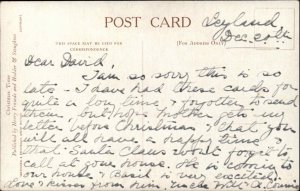 POST CARD
Leyland
Dec 20th
THIS SPACE MAY BE USED FOR
CORRESPONDENCE.
[FOR ADDRESS ONLY.]
Dear David,
I am so sorry this is so
late – I have had these cards for
quite a long time & forgotten to send
them, but hope mother gets my
letter before Christmas & that you
will all have a happy time &
that Santa Claus won't forget to
call at your house. He is coming to
our house & Basil is very excited.
Love & kisses from him, uncle Will &
Christmas Time
Published by Henry